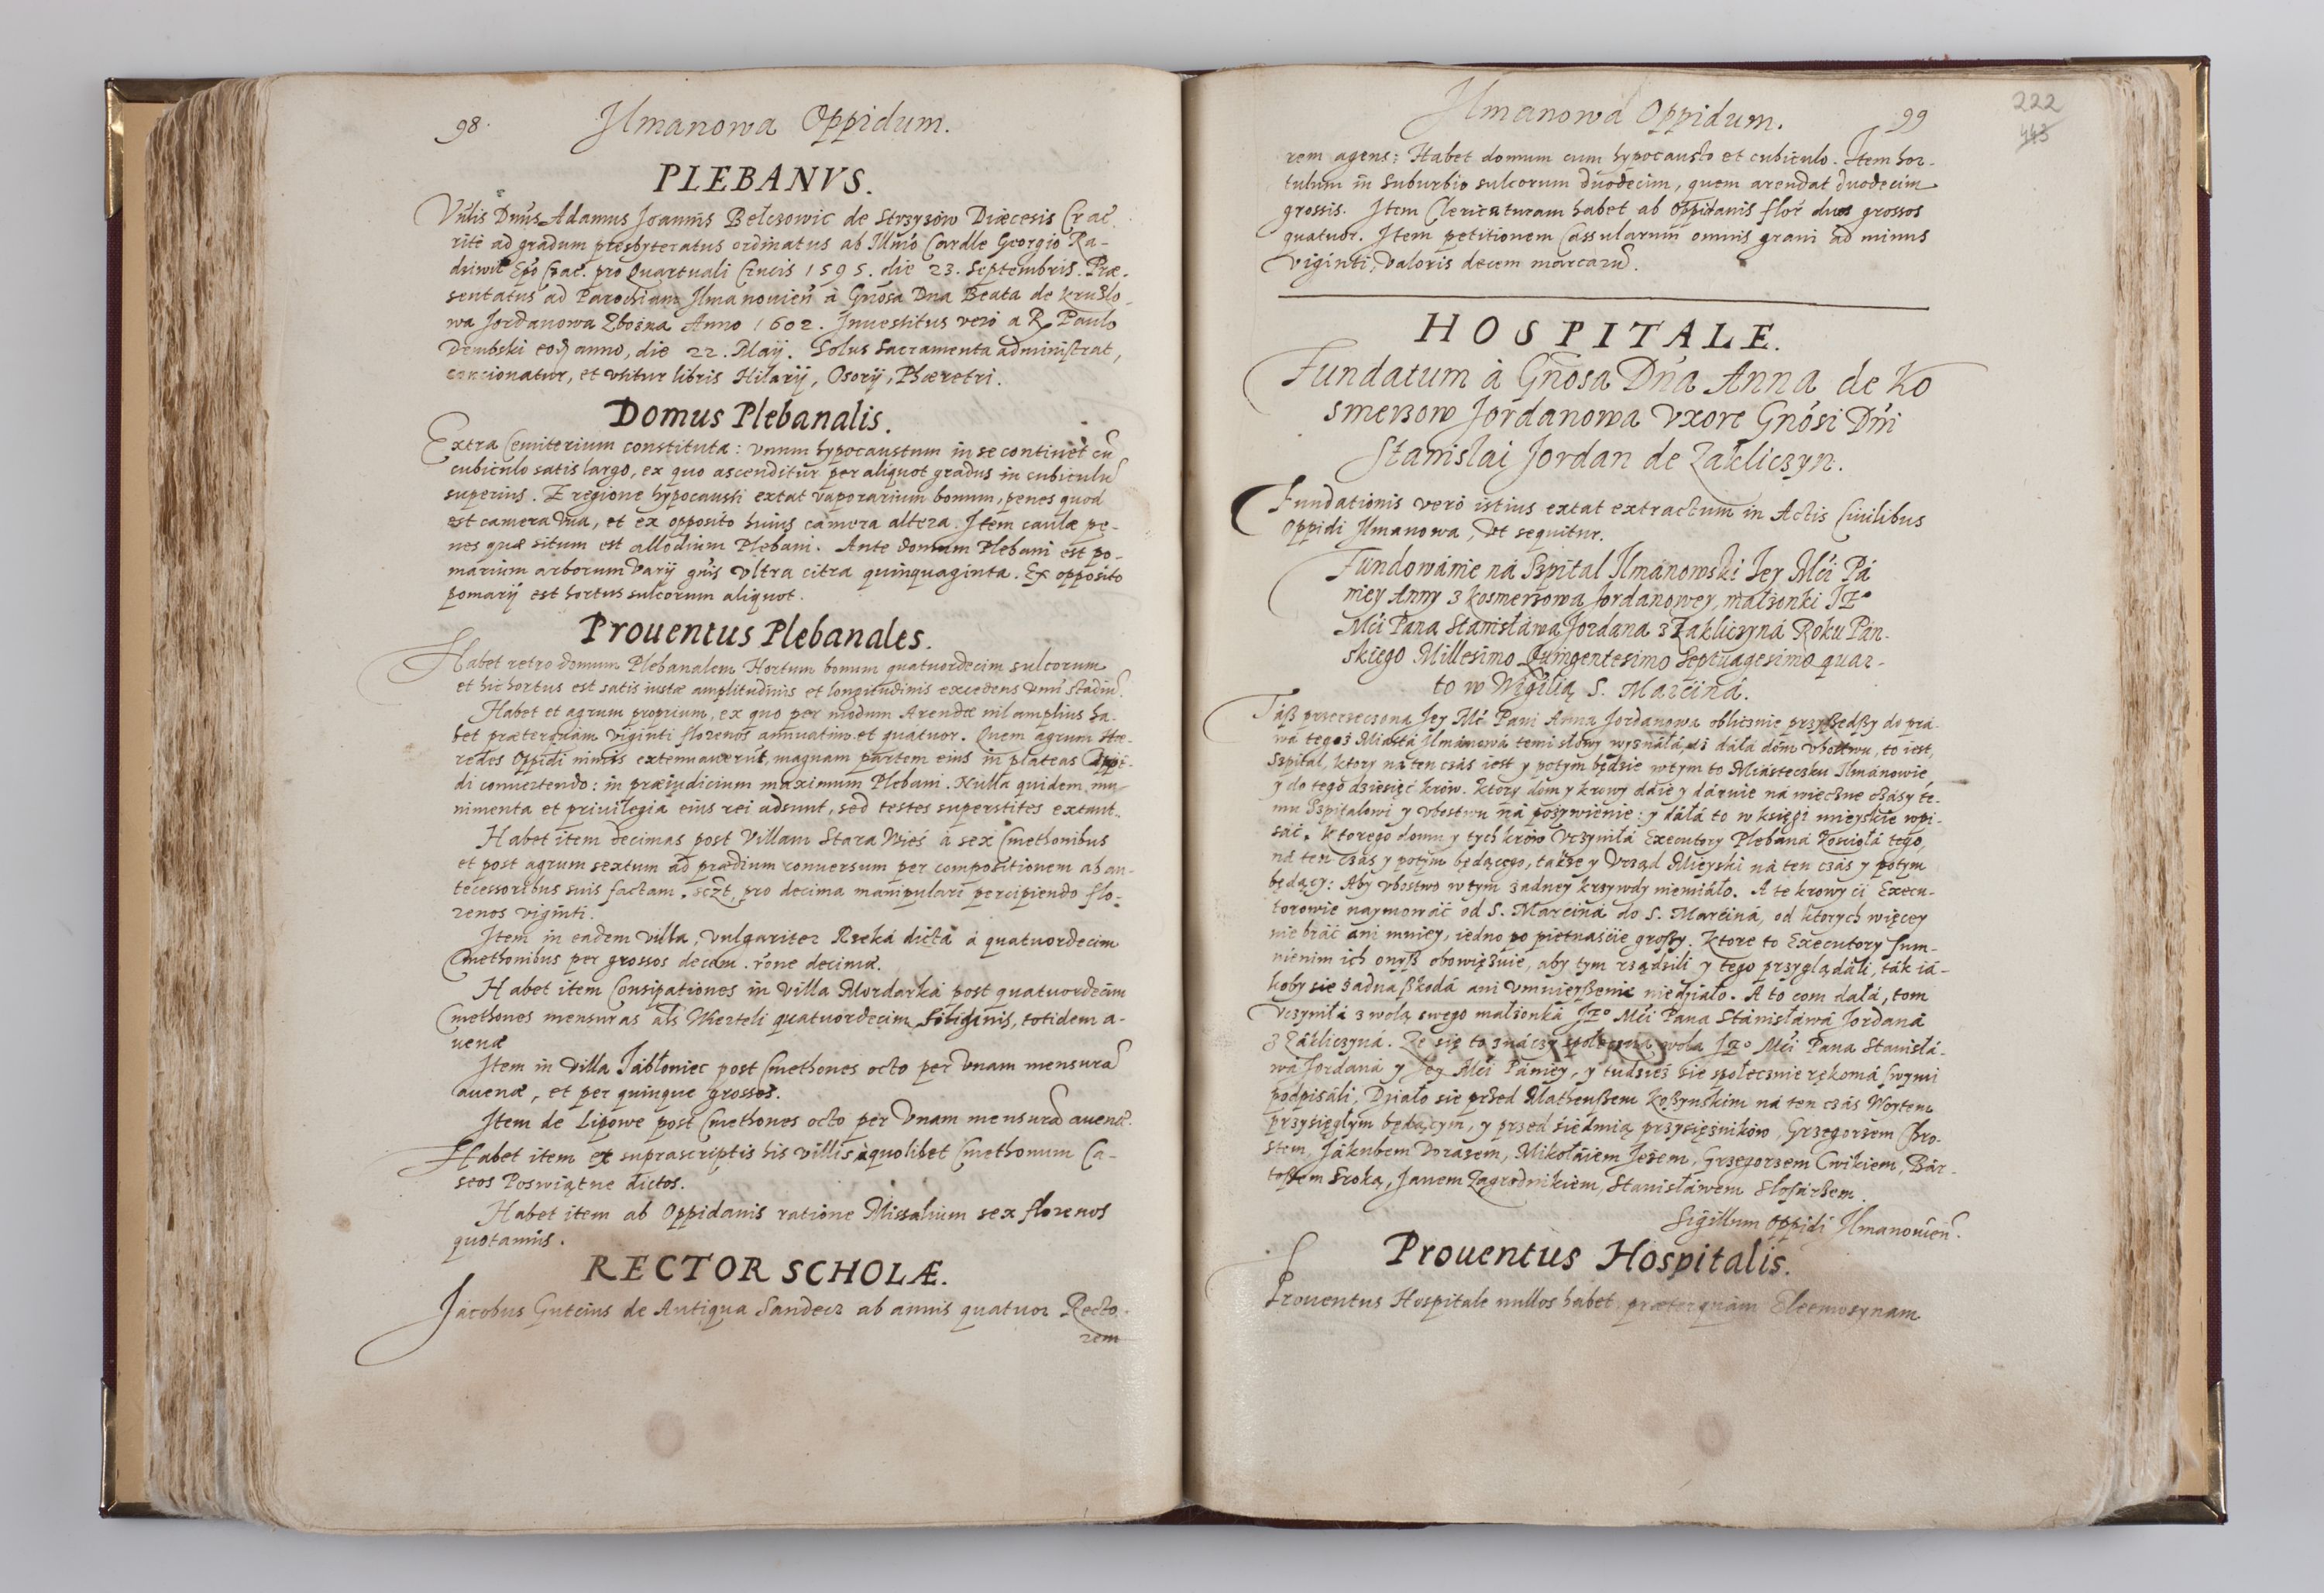 98.
Ilmanowa Oppidum.
PLEBANVS.
Vnlis Dnus Adamus Joannis Bełczowic de Strzyzow Diæcesis Crac.
ritè ad gradum presbyteratus ordinatus ab Illmo Cardle Georgio Ra-
dziwił Epo Crac. pro Quartuali Crucis 1595. die 23. Septembris. Præ-
sentatus ad Parochiam Ilmanouien à Gnosa Dna Beata de Krużlo-
wa Jordanowa Zbożna Anno 1602. Inuestitus verò a R. Paulo
Dembski eod anno, die 22. Maij. Solus Sacramenta administrat,
concionatur, et vtitur libris Hilarij, Osorij, Phæretri.
Domus Plebanalis.
Extra Cemiterium constituta: vnum hypocaustum in se continet cu
cubiculo satis largo, ex quo ascenditur per aliquot gradus in cubiculu
superius. E regione hypocausti extat vaporarium bonum, penes quod
est camera vna, et ex opposito huius camera altera. Item caulæ pe-
nes quæ situm est allodium Plebani. Ante domum Plebani est po-
marium arborum varij gnis vltra citra quinquaginta. Ex opposito
pomarij est hortus sulcorum aliquot.
Prouentus Plebanales.
Habet retro domum Plebanalem Hortum bonum quatuordecim sulcorum
et hic hortus est satis iustæ amplitudinis et longitudinis excedens vnu stadiu.
Habet et agrum proprium, ex quo per modum Arendæ nil amplius ha-
bet præterquam viginti florenos annuatim et quatuor. Quem agrum Hæ-
redes Oppidi nimis extenuauerut, magnam partem eius in plateas Oppi-
di conuertendo: in præiudicium maximum Plebani. Nulla quidem mu-
nimenta et priuilegia eius rei adsunt, sed testes superstites extant.
Habet item decimas post Villam Stara Wieś à sex Cmethonibus
et post agrum sextum ad prædium conuersum per compositionem ab an-
tecessoribus suis factam, sczt, pro decima manipulari percipiendo flo-
renos viginti.
Item in eadem villa, vulgariter Rzeká dicta à quatuordecim
Cmethonibus per grossos decem. rone decimæ.
Habet item Consipationes in villa Mordarka post quatuordecim
Cmethones mensuras als Wierteli quatuordecim Siliginis, totidem a-
uenæ
Item in villa Jabłoniec post Cmethones octo per vnam mensura
auenæ, et per quinque grossos.
Item de Lipowe post Cmethones octo per vnam mensura auenæ.
Habet item ex suprascriptis his villis à quolibet Cmethonum Ca-
seos Poswiątne dictos.
Habet item ab Oppidanis ratione Missalium sex florenos
quotannis.
RECTOR SCHOLÆ.
Jacobus Gutcius de Antiqua Sandecz ab annis quatuor Recto-
rem
Ilmanowa Oppidum.
99
222
443
rem agens: Habet domum cum hypocausto et cubiculo. Item hor-
tulum in suburbio sulcorum duodecim, quem arendat duodecim
grossis. Item Clericaturam habet ab oppidanis flor duos grossos
quatuor. Item petitionem Cassularum omnis grani ad minus
viginti, valoris decem marcaru.
HOSPITALE.
Fundatum à Gnosa Dna Anna de Ko
smerzow Jordanowa Vxore Gnosi Dni
Stanislai Jordan de Zakliczyn.
Fundationis verò istius extat extractum in Actis Ciuilibus
Oppidi Ilmanowa, vt sequitur.
Fundowánie ná Szpital Ilmánowski Jey Mci Pá
niey Anny z Kosmerzowa Jordanowey, małżonki JEo
Mci Pana Stanisłáwa Jordana z Zakliczyná Roku Pán-
skiego Millesimo Quingentesimo Septuagesimo quar-
to w Wigilią S. Marciná.
Táż przerzeczona Jey Mć. Pani Anna Jordanowa oblicznie przyszedszy do prá-
wá tegoż Miastá Ilmánowá temi słowy wyznáłá, iż dáłá dóm vbostwu, to iest,
Szpital, ktory ná ten czás iest y potym będzie w tym to Miásteczku Ilmánowie,
y do tego dziesięć krów. Ktory dom y krowy dáie y dáruie ná wieczne czásy te-
mu Szpitalowi y vbostwu ná pożywienie: y dáłá to w księgi mieyskie wpi-
sáć. Ktorego domu y tych krów vczyniłá Executory Plebaná Kościołá tego,
ná ten czás y potym będącego, także y Vrząd Mieyski ná ten czás y potym
będący: Aby vbostwo w tym żadney krzywdy niemiáło. A te krowy ci Execu-
torowie naymowáć od S. Marciná do S. Marciná, od ktorych więcey
nie bráć áni mniey, iedno po pietnaście groszy. Ktore to Executory sum-
nienim ich onyß obowięzuie, aby tym rządzili y tego przyglądáli, ták iá-
koby sie żadna szkodá ani vmnieyszenie niedziało. A to com dałá, tom
vczyniłá z wolą swego małżonká JEo Mci Pana Stánisłáwá Jordaná
z Zákliczyná. Ze się to znáczy społeczna wola JEo Mci Pana Stanisłá-
wá Jordaná y Jey Mci Pániey, y tudzież sie społecznie rękomá swymi
podpisáli. Dzialo sie przed Matheuszem Koszynskim ná ten czás Woytem
przysięgłym będącym, y przed siedmią przysięznikow, Grzegorzem Chro-
stem, Jákubem Dorazem, Mikołáiem Jeżem, Grzegorzem Cwikiem, Bár-
toszem Sroką, Janem Zagrodnikiem, Stanisłáwem Slosárzem.
Sigillum Oppidi Ilmanouien.
Prouentus Hospitalis.
Prouentus Hospitale nullos habet præterquàm Eleemosynam